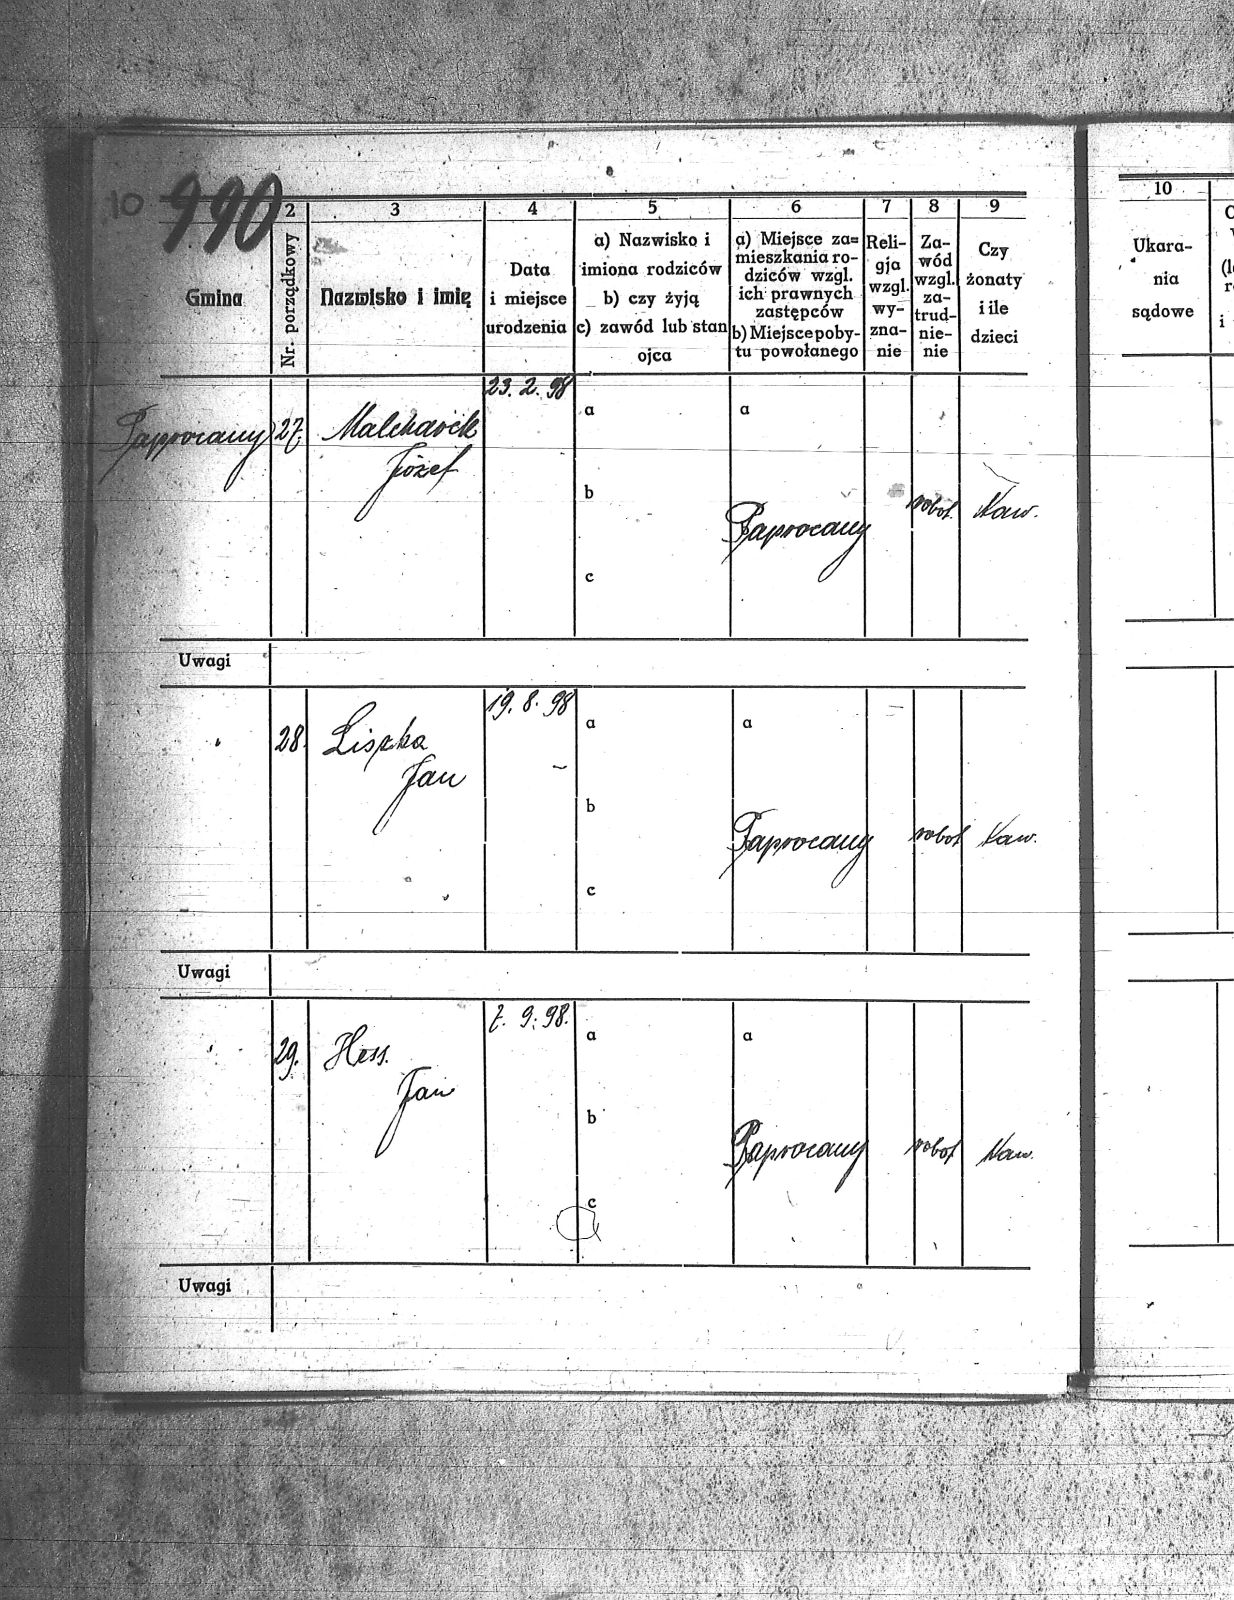 10 990
2 3 4 5 6 7 8 9
Gmina
Nr. porządkowy
Nazwisko i imię
Data
i miejsce
urodzenia
a) Nazwisko i
imiona rodziców
b) czy żyją
c) zawód lub stan
ojca
a) Miejsce za=
mieszkania ro-
dziców wzgl.
ich prawnych
zastępców
b) Miejsce poby-
tu powołanego
Reli-
gja
wzgl.
wy-
zna-
nie
Za-
wód
wzgl.
za-
trud-
nie-
nie
Czy
żonaty
i ile
dzieci
23. 2. 98
Paprocany 27. Malcharek a a
Józef
b
Paprocany robot. Kaw.
c
Uwagi
19. 8. 98
28. Liszka a a
Jan
b
Paprocany robot Kaw.
c
Uwagi
7. 9. 98.
29. Hess. a a
Jan
b
Paprocany robot Kaw.
c
Uwagi
10
Ukara-
nia
sądowe